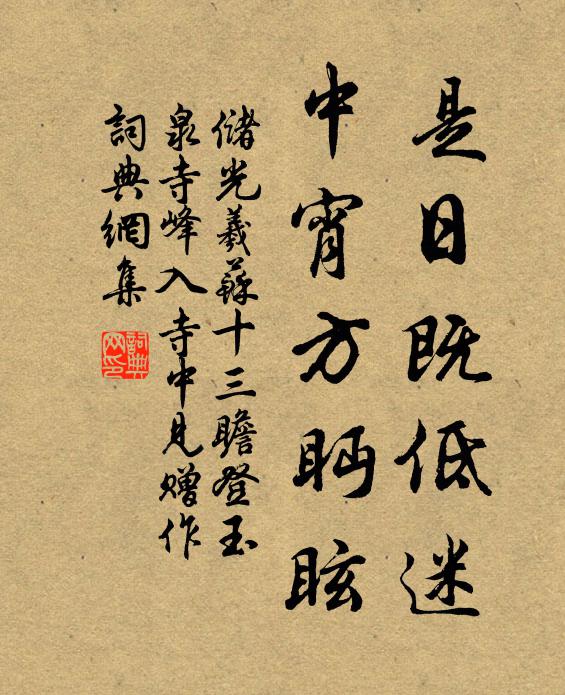 是日既低迷
中宵方眄眩
儲光羲蘇十三瞻登玉
泉寺峰入寺中見贈作
詞典網集
詞典
网印